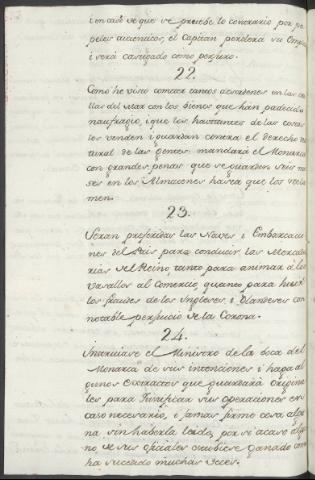 i en caso de que se pruebe lo contrario por pa-
peles autenticos, el Capitan perderá su Empleo
i será castigado como perjuro.
22.
Como he visto cometer tantos desordenes en las cos-
tas del Mar con los bienes que han padecido
naufragio, i que los havitantes de las costas
los venden i guardan contra el derecho na-
tural de las gentes mandará el Monarca
con grandes penas que se guarden seis me-
ses en los Almacenes hasta que los recla-
men.
23.
Seran preferidas las Naves i Embarcacio-
nes del Pais para conducir las Mercade-
rias del Reino, tanto para animar á los
vasallos al Comercio, quanto para huir
los fraudes de los Ingleses, i Olandeses con
notable perjuicio de la Corona.
24.
el Ministro de la boca del
Monarca de sus intenciones i haga al-
gunos Extractos que guardará origina-
les para justificar sus operaciones en
caso necesario, i jamas firme cosa algu-
na sin haberla leido, por si acaso algu-
no de sus oficiales estubiese ganado como
ha sucedido muchas veces.